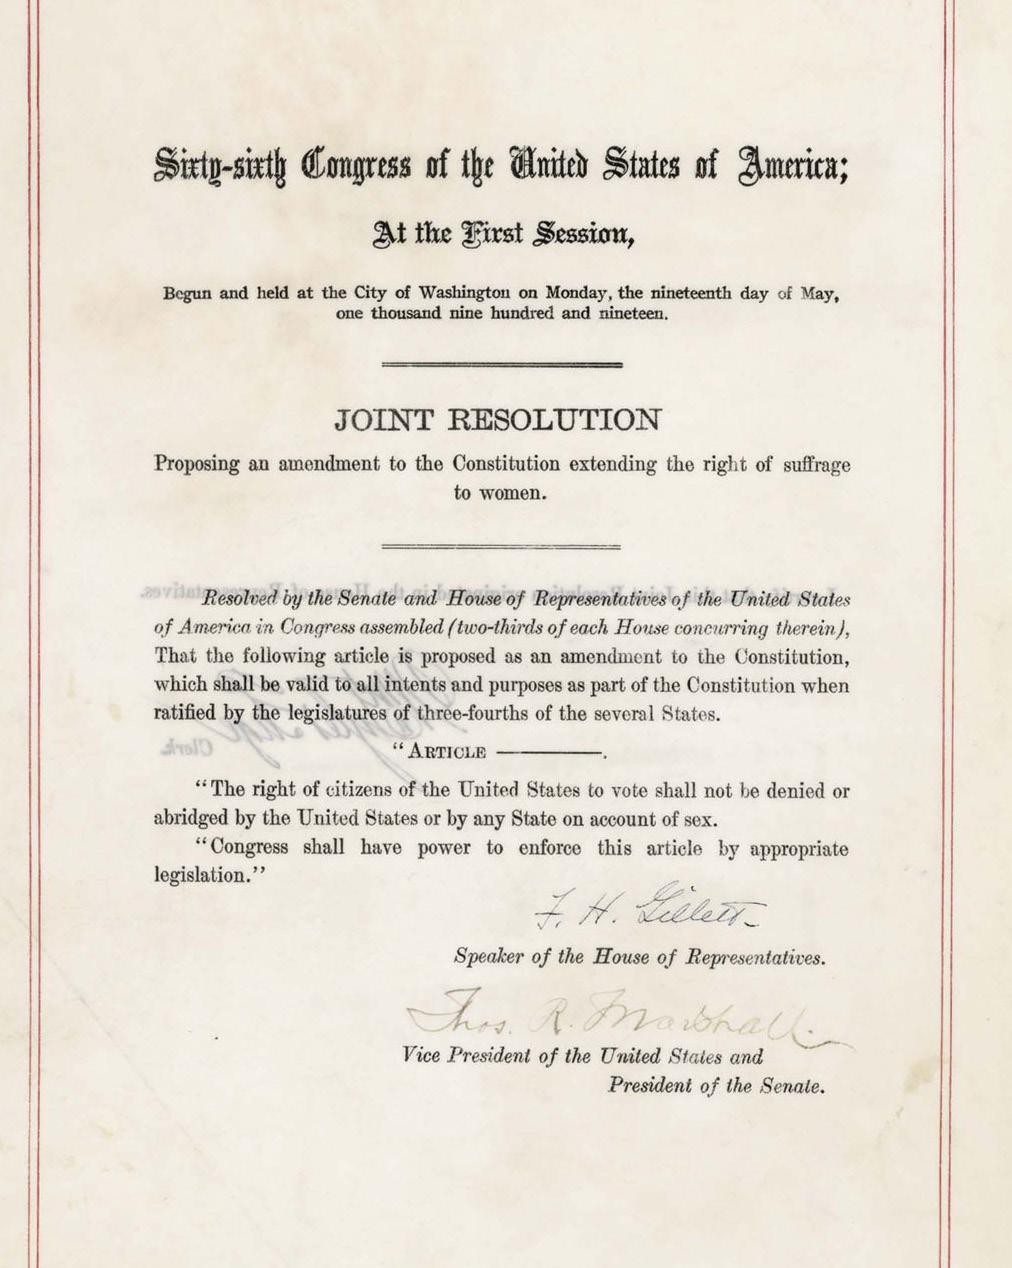 Sixty-sixth Congress of the United States of America;
At the First Session,
Begun and held at the City of Washington on Monday, the nineteenth day of May,
one thousand nine hundred and nineteen.
JOINT RESOLUTION
Proposing an amendment to the Constitution extending the right of suffrage
to women.
Resolved by the Senate and House of Representatives of the United States
of America in Congress assembled (two-thirds of each House concurring therein),
That the following article is proposed as an amendment to the Constitution,
which shall be valid to all intents and purposes as part of the Constitution when
ratified by the legislatures of three-fourths of the several States.
"ARTICLE ————.
"The right of citizens of the United States to vote shall not be denied or
abridged by the United States or by any State on account of sex.
"Congress shall have power to enforce this article by appropriate
legislation."
F. H. Gillett
Speaker of the House of Representatives.
Thos. R. Marshall.
Vice President of the United States and
President of the Senate.